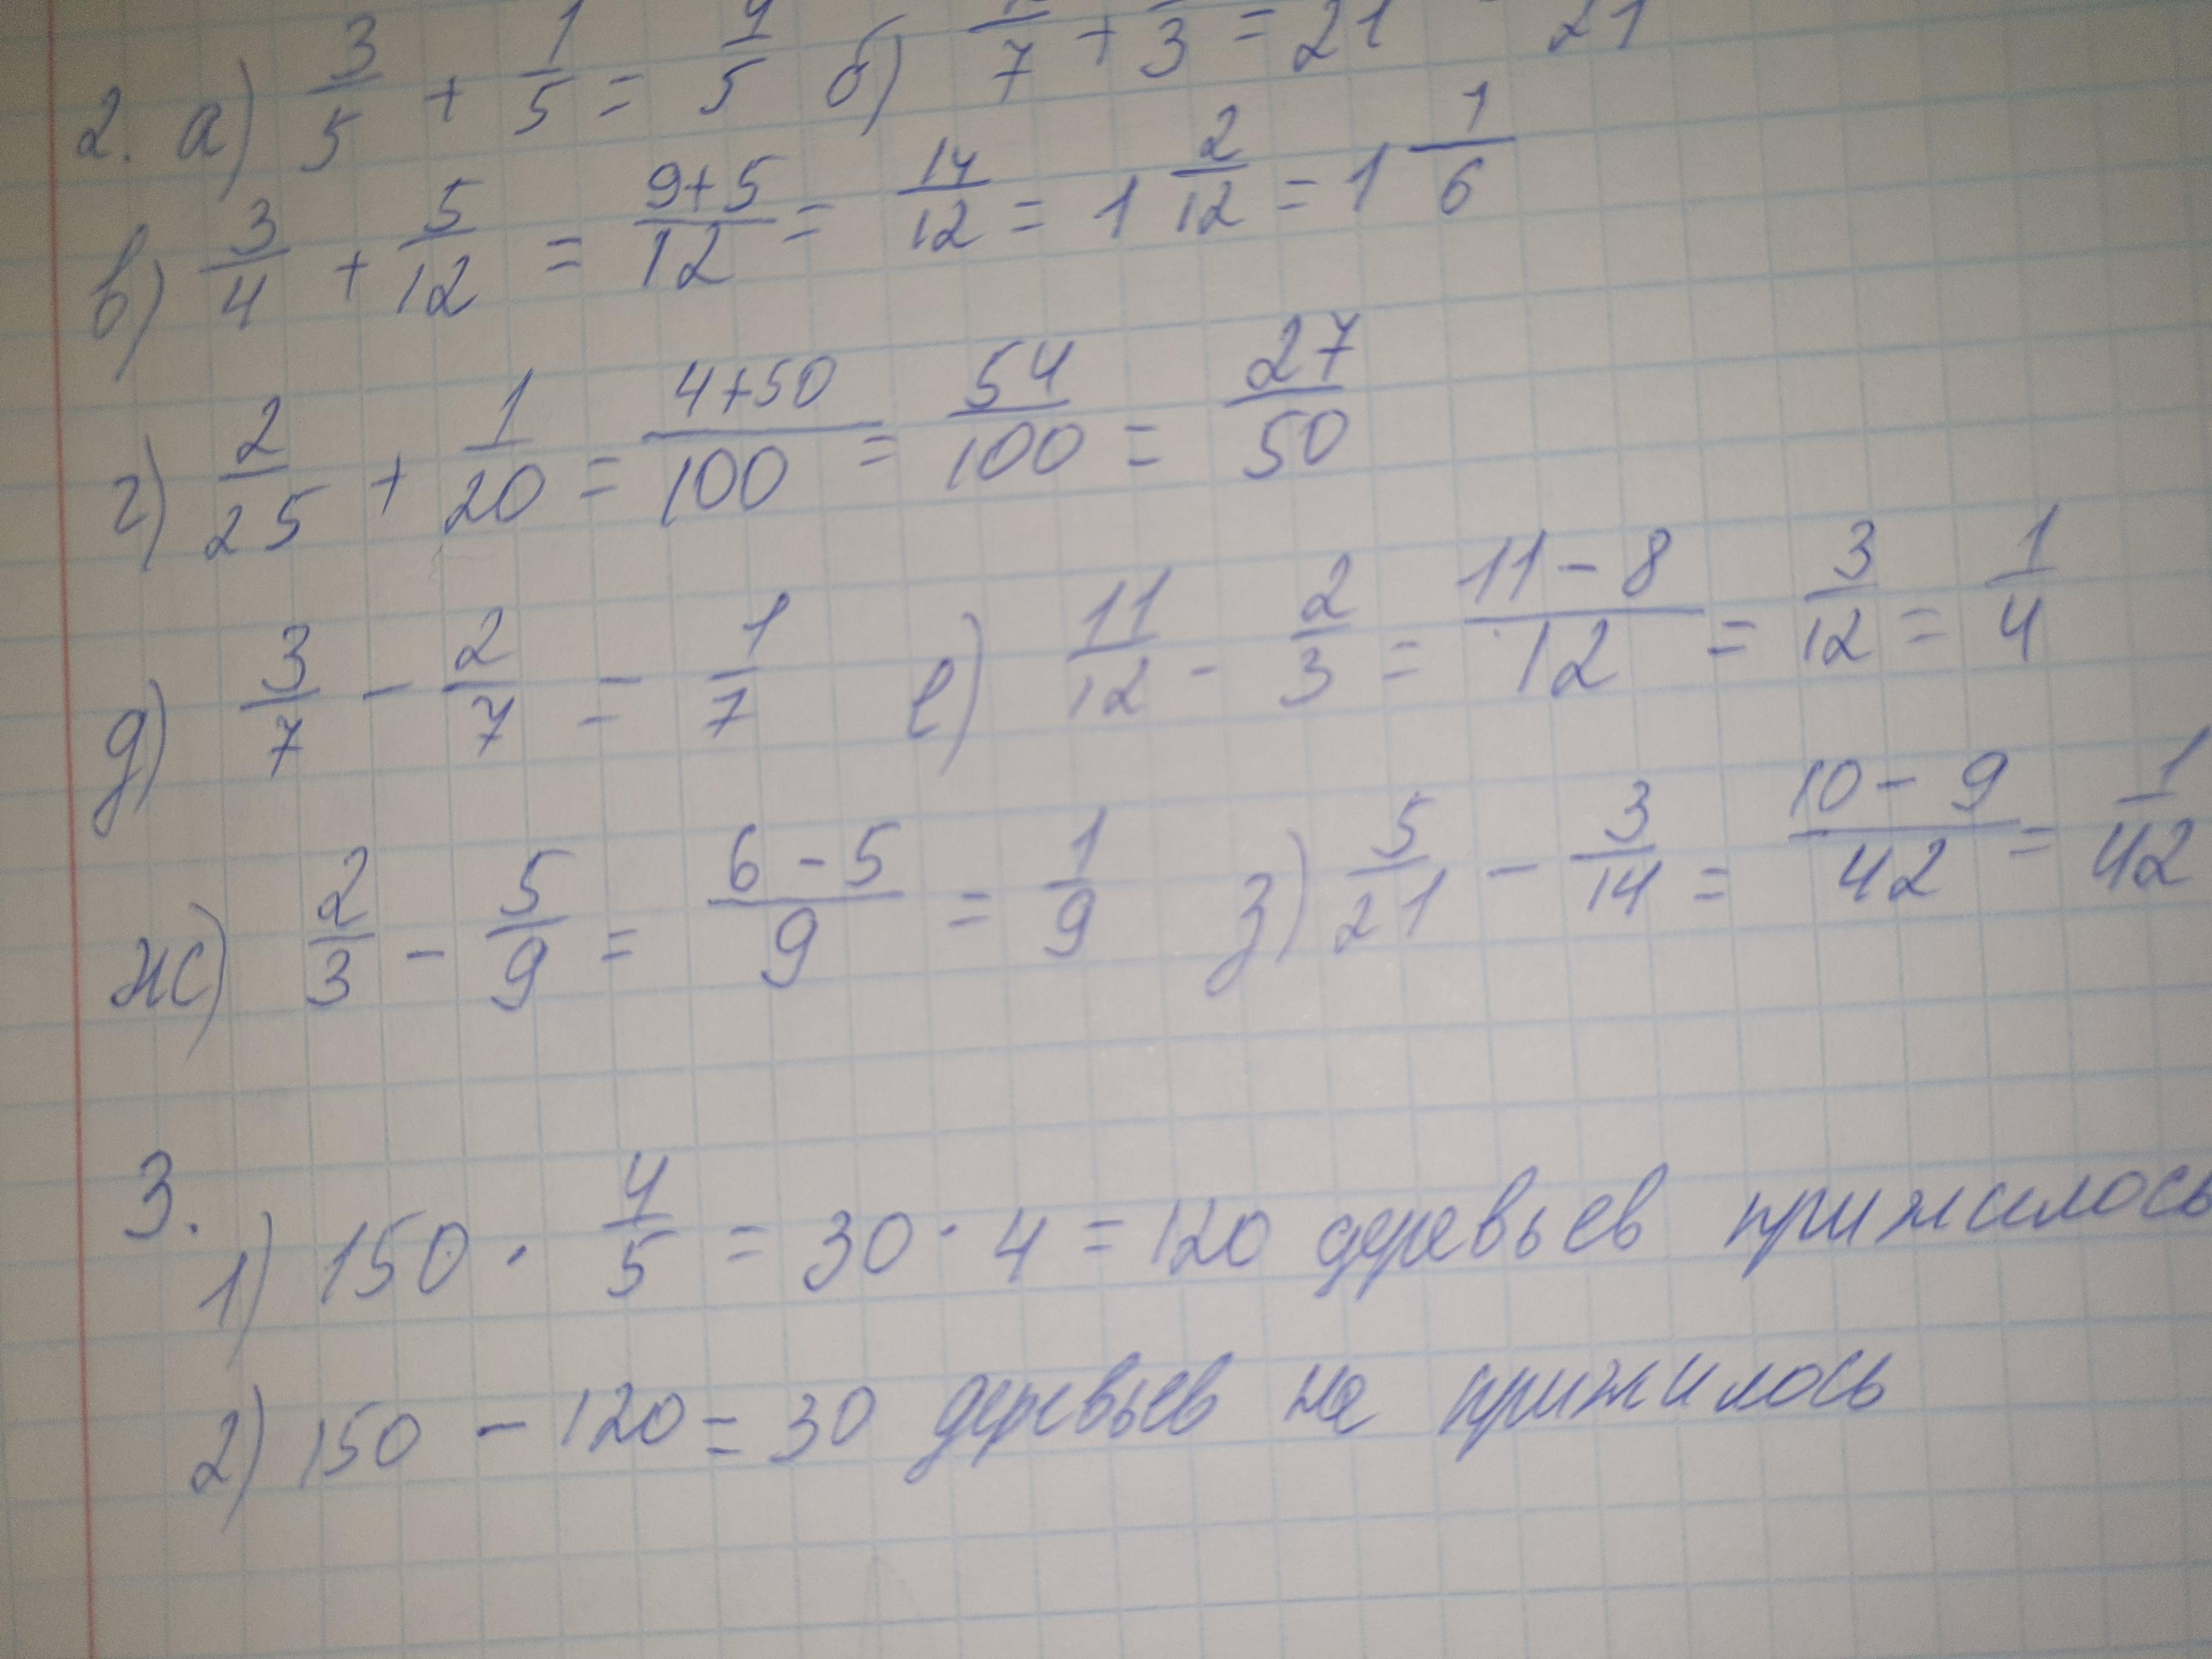 2. а) 3/5 + 1/5 = 4/5 б) /7 + /3 = /21 /21
в) 3/4 + 5/12 = (9+5)/12 = 14/12 = 1 2/12 = 1 1/6
г) 2/25 + 1/20 = (4+50)/100 = 54/100 = 27/50
д) 3/7 - 2/7 = 1/7 е) 11/12 - 2/3 = (11-8)/12 = 3/12 = 1/4
ж) 2/3 - 5/9 = (6-5)/9 = 1/9 з) 5/21 - 3/14 = (10-9)/42 = 1/42
3.
1) 150 · 4/5 = 30 · 4 = 120 деревьев прижилось
2) 150 - 120 = 30 деревьев не прижилось